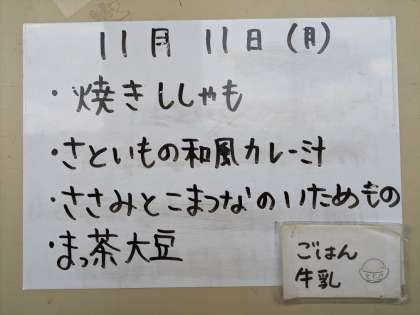 11月 11日(月)
・焼きししゃも
・さといもの和風カレー汁
・ささみとこまつなのいためもの
・まっ茶大豆
ごはん
牛乳